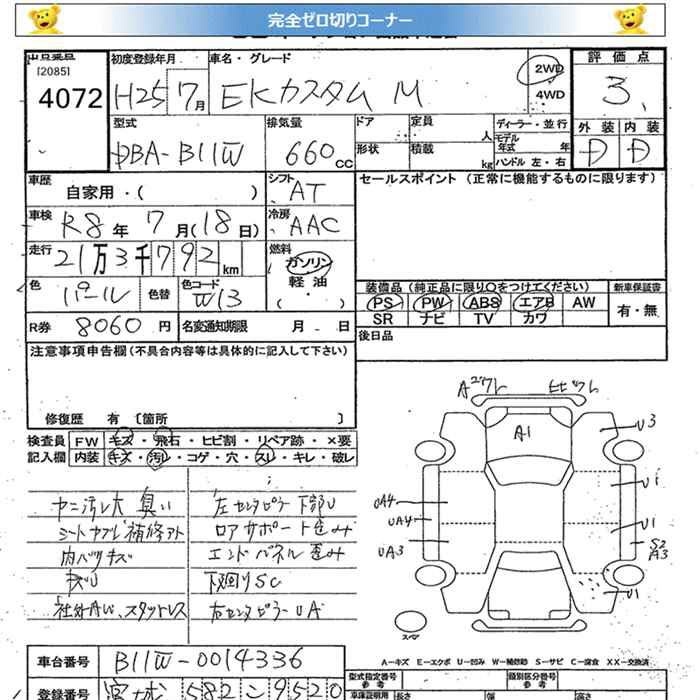 完全ゼロ切りコーナー
出品番号
[2085]
4072
初度登録年月
H25 7月
車名・グレード
EKカスタム M
2WD
4WD
評価点
3、
型式
DBA-B11W
排気量
660CC
ドア
形状
定員
人
積載
kg
ディーラー・並行
モデル年式 年
ハンドル 左・右
外装 内装
D D
車歴
自家用・( )
シフト
AT
セールスポイント (正常に機能するものに限ります)
車検
R8年 7月(18日)
冷房
AAC
走行
21万3千792km
燃料
ガソリン
軽油
( ・ )
色
パール
色替
色コード
W13
装備品(純正品に限り○をつけてください)
新車保証書
PS PW ABS エアB AW
有・無
SR ナビ TV カワ
R券
8060円
名変通知期限
月 日
後日品
注意事項申告欄(不具合内容等は具体的に記入して下さい)
修復歴 有〔箇所 〕
検査員 FW キズ・飛石・ヒビ割・リペア跡・×要
記入欄 内装 キズ・汚レ・コゲ・穴・スレ・キレ・破レ
ヤニ汚レ大 臭い
左センタピラー下部U
シートカブレ補修アト
ロアサポート歪み
内バリキズ
エンドパネル歪み
キズU
下廻りSC
社外AW、スタットレス
右センタピラーUA
A2ワレ
ヒビワレ
A1
U3
U1
UA4
UA4
U1
UA3
S2
A3
U1
スペア
A-キズ E-エクボ U-凹み W-補修跡 S-サビ C-腐食 XX-交換済
車台番号
B11W-0014336
登録番号
宮城 582 こ 9520
型式指定番号
参考
類別区分番号
参考
車検証明用
長さ
幅
高さ